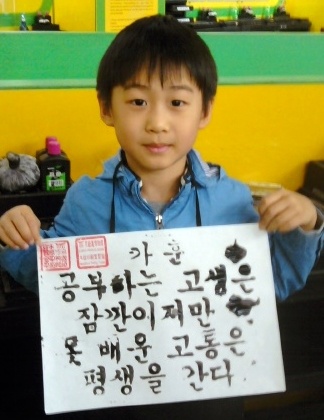 가훈
공부하는 고생은
잠깐이지만
못 배운 고통은
평생을 간다